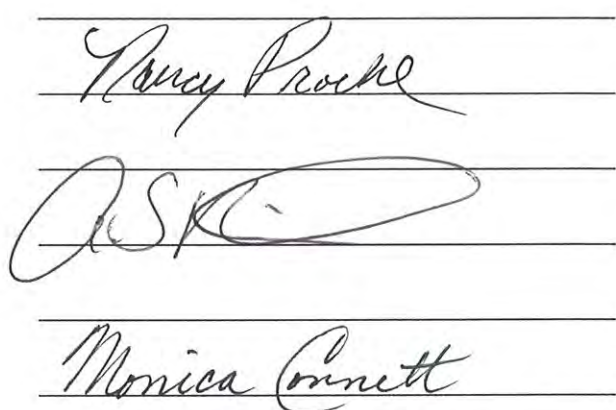 Nancy Proche
Monica Connett